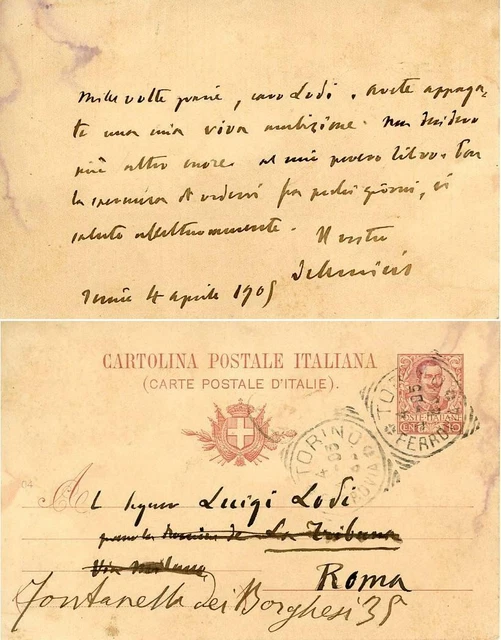 Mille volte grazie, caro Lodi. Avete appaga-
to una mia viva ambizione. Non desidero
più altro onore al mio povero libro. Con
la speranza di vedervi fra pochi giorni, vi
saluto affettuosamente. Il vostro
Torino 4 aprile 1905
CARTOLINA POSTALE ITALIANA
(CARTE POSTALE D'ITALIE).
POSTE ITALIANE
TORINO
FERROVIA
TORINO
4
05
ROMA
Al Signor Luigi Lodi
La Tribuna
Via Milano
Roma
Fontanella dei Borghesi 35